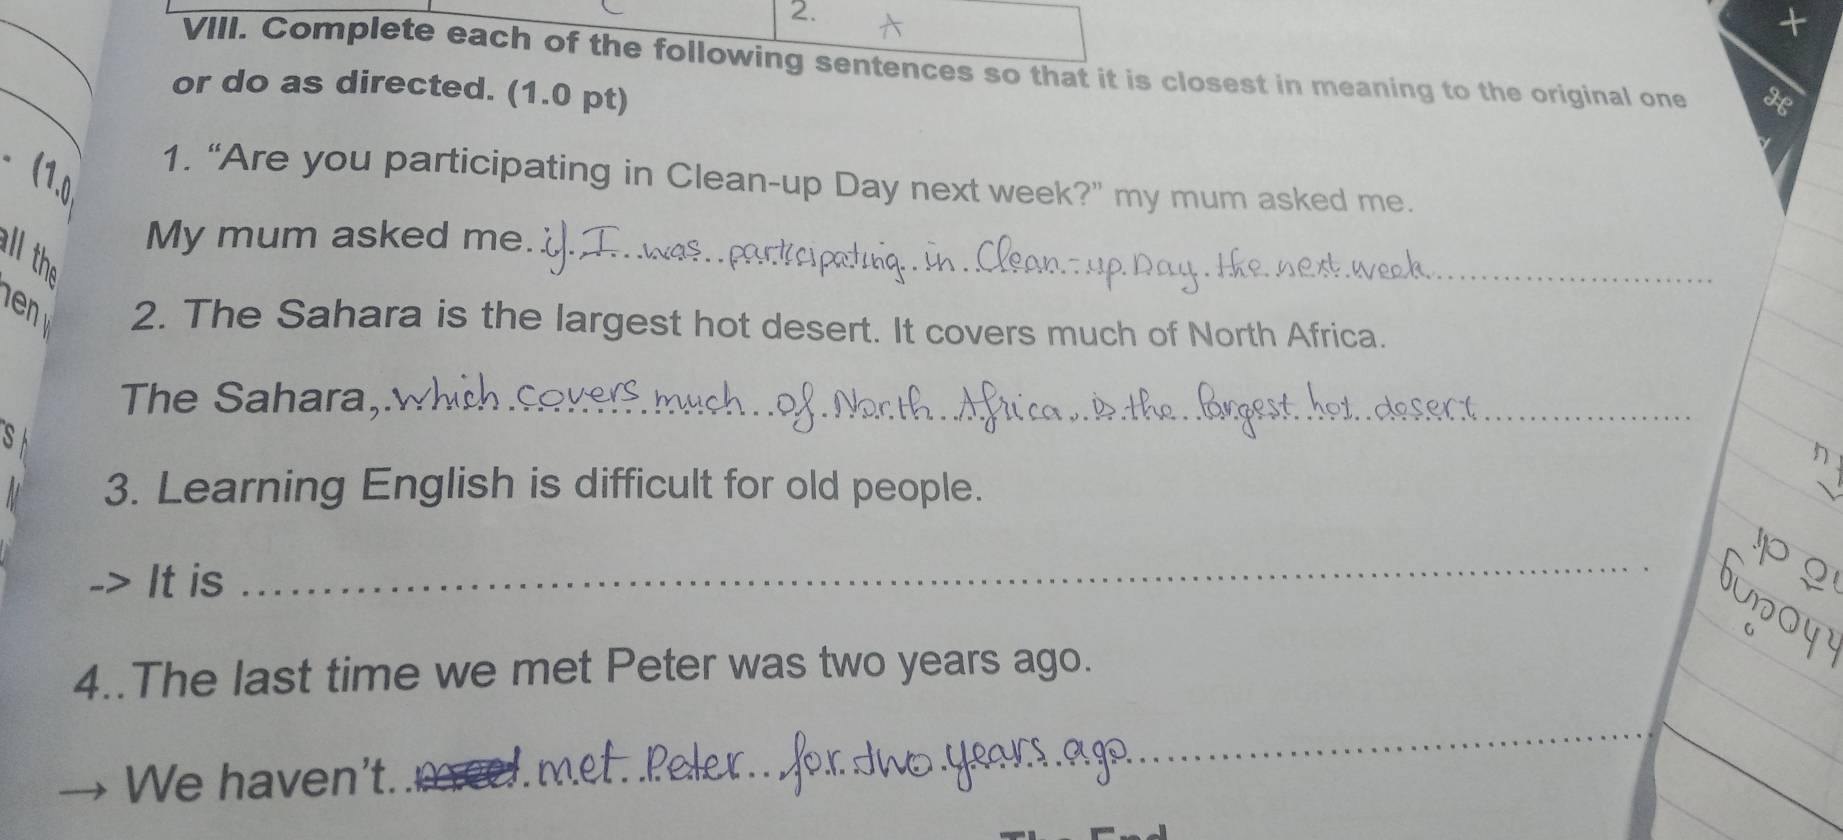 2. A
VIII. Complete each of the following sentences so that it is closest in meaning to the original one
or do as directed. (1.0 pt)
1. “Are you participating in Clean-up Day next week?” my mum asked me.
My mum asked me. if I was participating in Clean-up Day the next week
2. The Sahara is the largest hot desert. It covers much of North Africa.
The Sahara, which covers much of North Africa, is the largest hot desert
3. Learning English is difficult for old people.
-> It is
4..The last time we met Peter was two years ago.
→ We haven't met Peter for two years ago
(1.0
all the